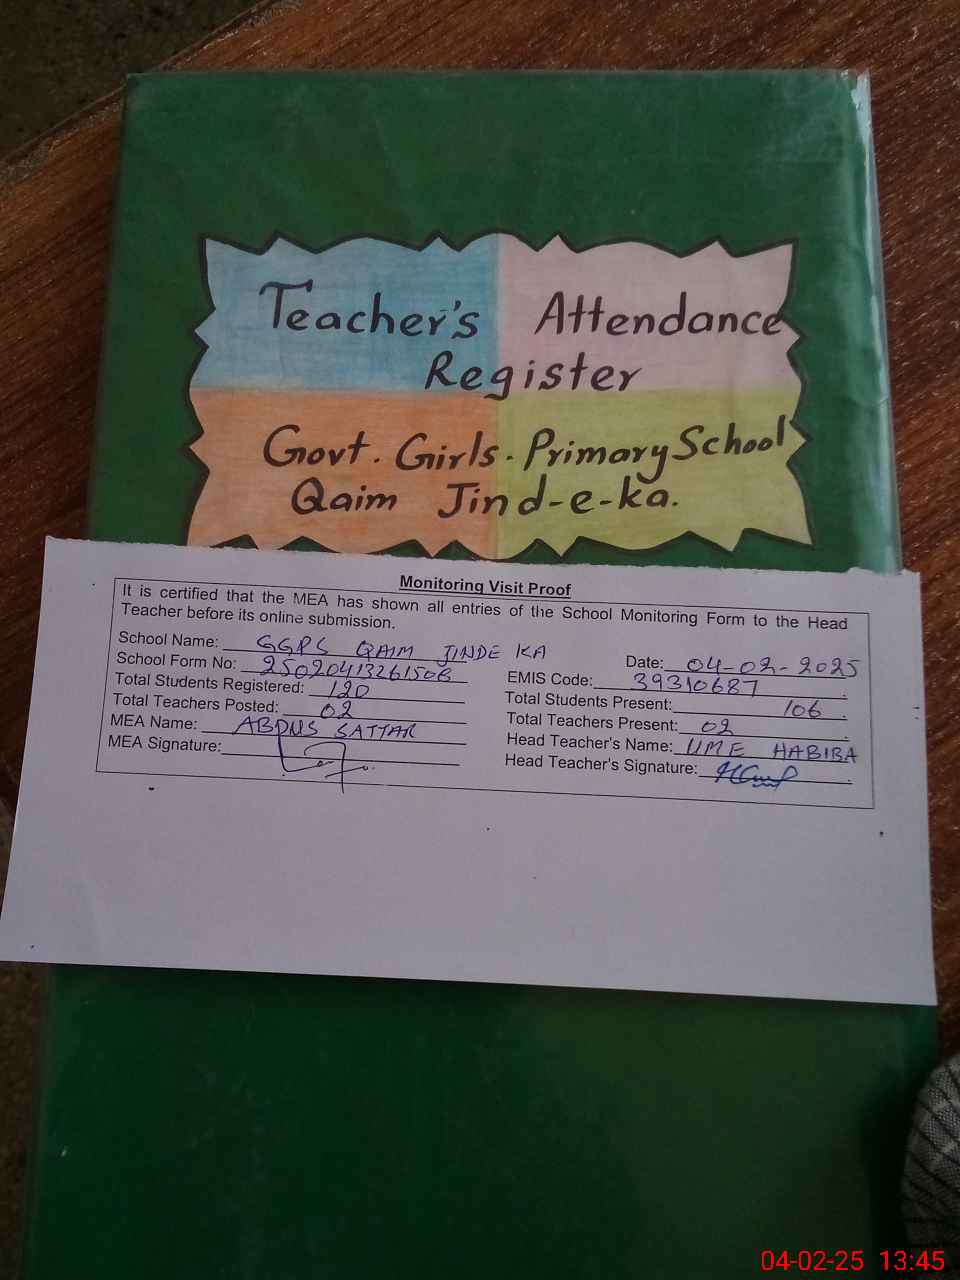 Teacher's Attendance
Register
Govt. Girls. Primary School
Qaim Jind-e-ka.
Monitoring Visit Proof
It is certified that the MEA has shown all entries of the School Monitoring Form to the Head
Teacher before its online submission.
School Name: GGPS QAIM JINDE KA
Date: 04-02-2025
School Form No:
EMIS Code: 39310687
Total Students Registered: 120
Total Students Present: 106
Total Teachers Posted: 02
Total Teachers Present: 02
MEA Name: SATTAR
Head Teacher's Name: UME HABIBA
MEA Signature:
Head Teacher's Signature:
04-02-25 13:45